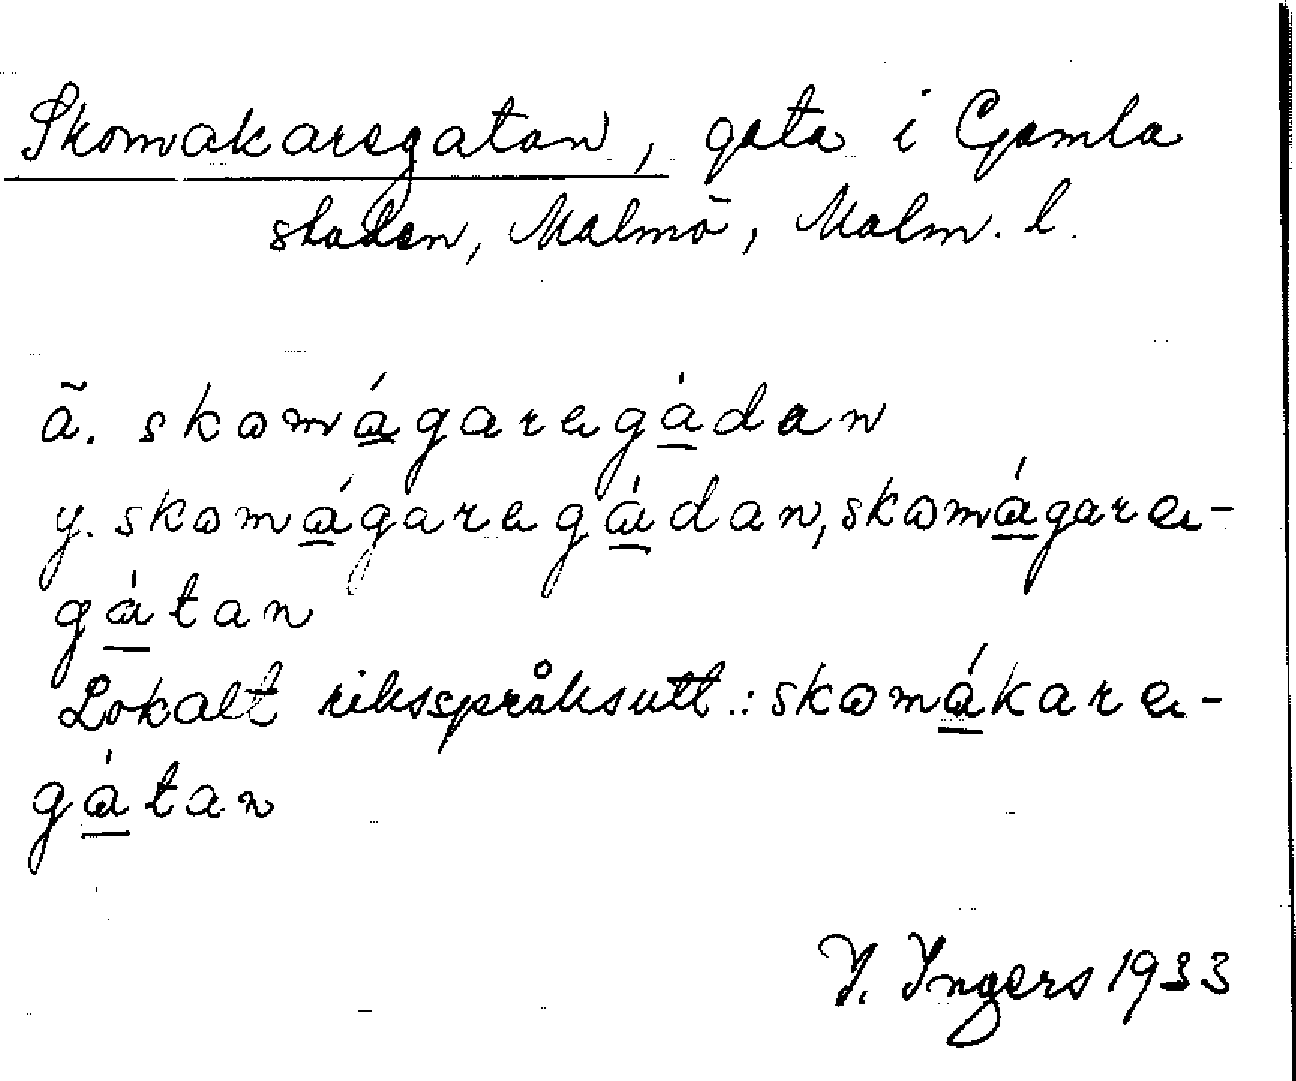 Skomakaregatan, gata i Gamla
staden, Malmö, Malm. l.
ã. skomágaregàdan
y. skomágaregàdan, skomágare-
gàtan
Lokalt riksspråksutt.: skomákare-
gàtan
I. Ingers 1933